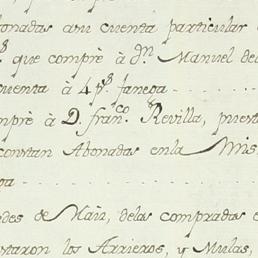 onadas a su cuenta particular
s. que comprè à dn. Manuel de
cuenta à 4 ps. fanega
mprè à D. franco. Revilla, puest
constan Abonadas en la Mis
ga
des de Maiz, delas compradas
staron los Arrieros, y Mulas,